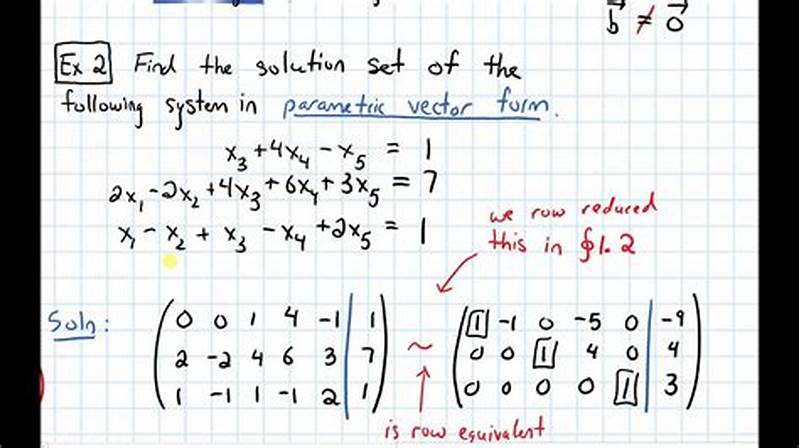 b⃗ ≠ 0⃗
Ex 2 Find the solution set of the
following system in parametric vector form.
x₃ + 4x₄ - x₅ = 1
2x₁ - 2x₂ + 4x₃ + 6x₄ + 3x₅ = 7
x₁ - x₂ + x₃ - x₄ + 2x₅ = 1
we row reduced
this in §1.2
Soln:
0 0 1 4 -1 | 1
2 -2 4 6 3 | 7
1 -1 1 -1 2 | 1
~
1 -1 0 -5 0 | -9
0 0 1 4 0 | 4
0 0 0 0 1 | 3
is row equivalent